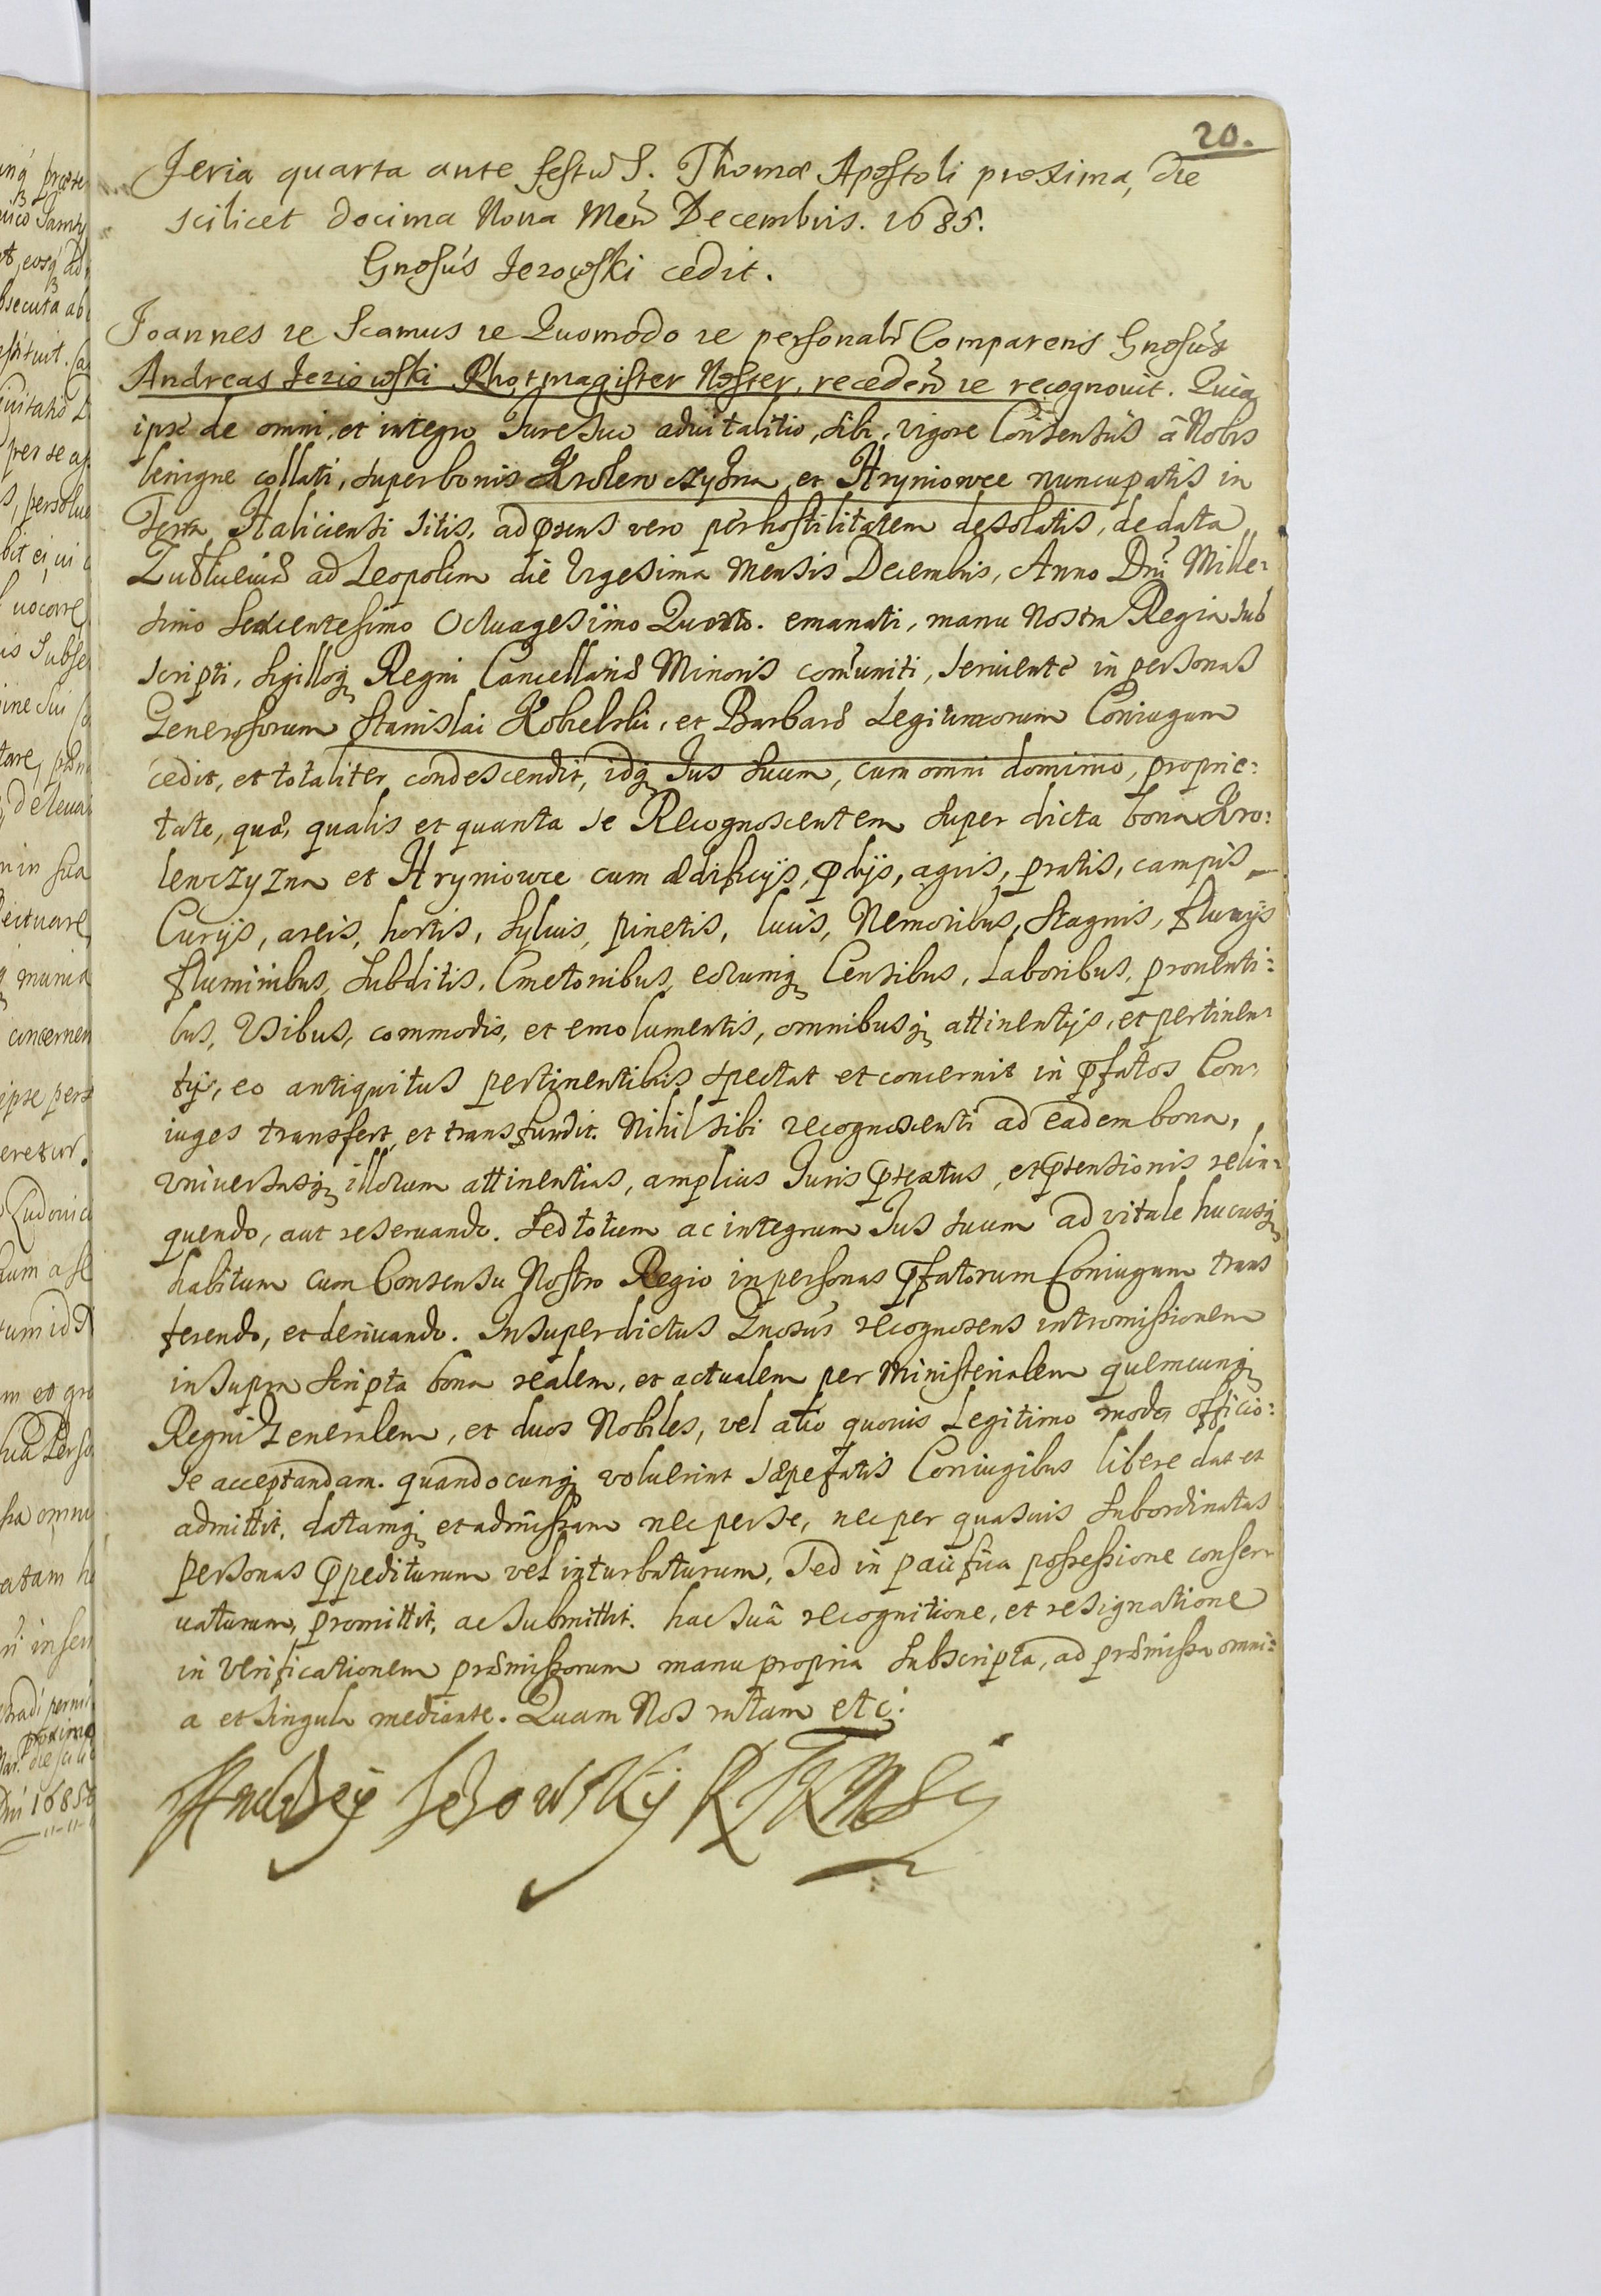 20.
Feria quarta ante festū S. Thomæ Apostoli proxima, die
scilicet Decima Nona Men̄ Decembris. 1685.
Gnosūs Jezowski cedit.
Joannes re Scamus re Quomodo re personalr̄ Comparens Gnosūs
Andreas Jeziowski Rhotmagister Noster, receden̄ re recognouit. Quia
ipse de omni, et integro Jure suo aduitalitio, sibi, vigore Consensus à Nobis
benigne collati, super bonis Krolewczyzna et Hryniowce nuncupatis in
Terra Haliciensi sitis, ad pr̄sens vero per hostilitatem desolatis, de data
ad Leopolim die Vigesima Mensis Decembris, Anno Dnī Mille-
simo Sexcentesimo Octuagesimo Quarto. emanati, manu Nostra Regia sub
scripti, sigilloq̨ Regni Cancellariæ Minoris com̄uniti, seruiente in personas
Generosorum Stanislai Kobielski, et Barbaræ Legitimorum Coniugum
cedit, et totaliter condescendit, idq̨ Jus suum, cum omni dominio, proprie:
tate, quo, qualis et quanta se Recognoscentem super dicta bona Kro:
lewczyzna et Hryniowce cum ædificijs, p̄dijs, agris, pratis, campis,
Curijs, areis, hortis, syluis, pinetis, lucis, Nemoribus, stagnis, fluuijs
fluminibus, subditis, Cmetonibus, eorumq̨ Censibus, Laboribus, prouenti:
bus, Vsibus, commodis, et emolumentis, omnibusq̨ attinentijs, et pertinen-
tijs, eo antiquitus pertinentibus spectat et concernit in p̄fatos Con-
iuges transfert, et transfundit. Nihil sibi recognoscenti ad eadem bona,
vniuersasq̨ illorum attinentias, amplius Juris p̄textus, et p̄tensionis relin-
quendo, aut reseruando. Sed totum ac integrum Jus suum ad vitale hucusq̨
habitum cum Consensu Nostro Regio in personas p̄fatorum Coniugum trans
ferendo, et deriuando. Insuper dictus Gnosūs recognoscens intromissionem
in supra scripta bona realem, et actualem per Ministerialem quemcunq̨
Regni Generalem, et duos Nobiles, vel alio quouis Legitimo modo officio:
se acceptandam. quandocunq̨ voluerint sæpefatis Coniugibus libere dat et
admittit, datamq̨ et admissam nec per se, nec per quasuis subordinatas
personas p̄pediturum vel inturbaturum, Sed in pacifica possessione conser-
uaturum, promittit, ac submittit. hac suâ recognitione, et resignatione
in Verificationem præmissorum manu propria subscripta, ad præmissa omni:
a et singula mediante. Quam Nos ratam etc:
Andrzey Jezowsky